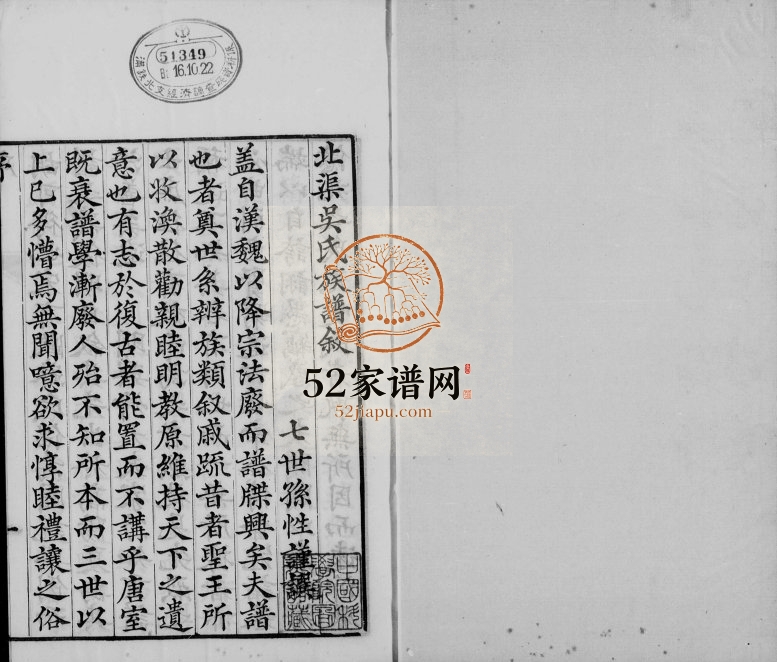 北渠吳氏族譜叙
七世孫性謹譔
蓋自漢魏以降宗法廢而譜牒興矣夫譜
也者奠世系辨族類叙戚疏昔者聖王所
以收渙散勸親睦明教原維持天下之遺
意也有志於復古者能置而不講乎唐室
既衰譜學漸廢人殆不知所本而三世以
上已多懵焉無聞噫欲求惇睦禮讓之俗
序
一
51349
16.10.22
52家谱网
52jiapu.com